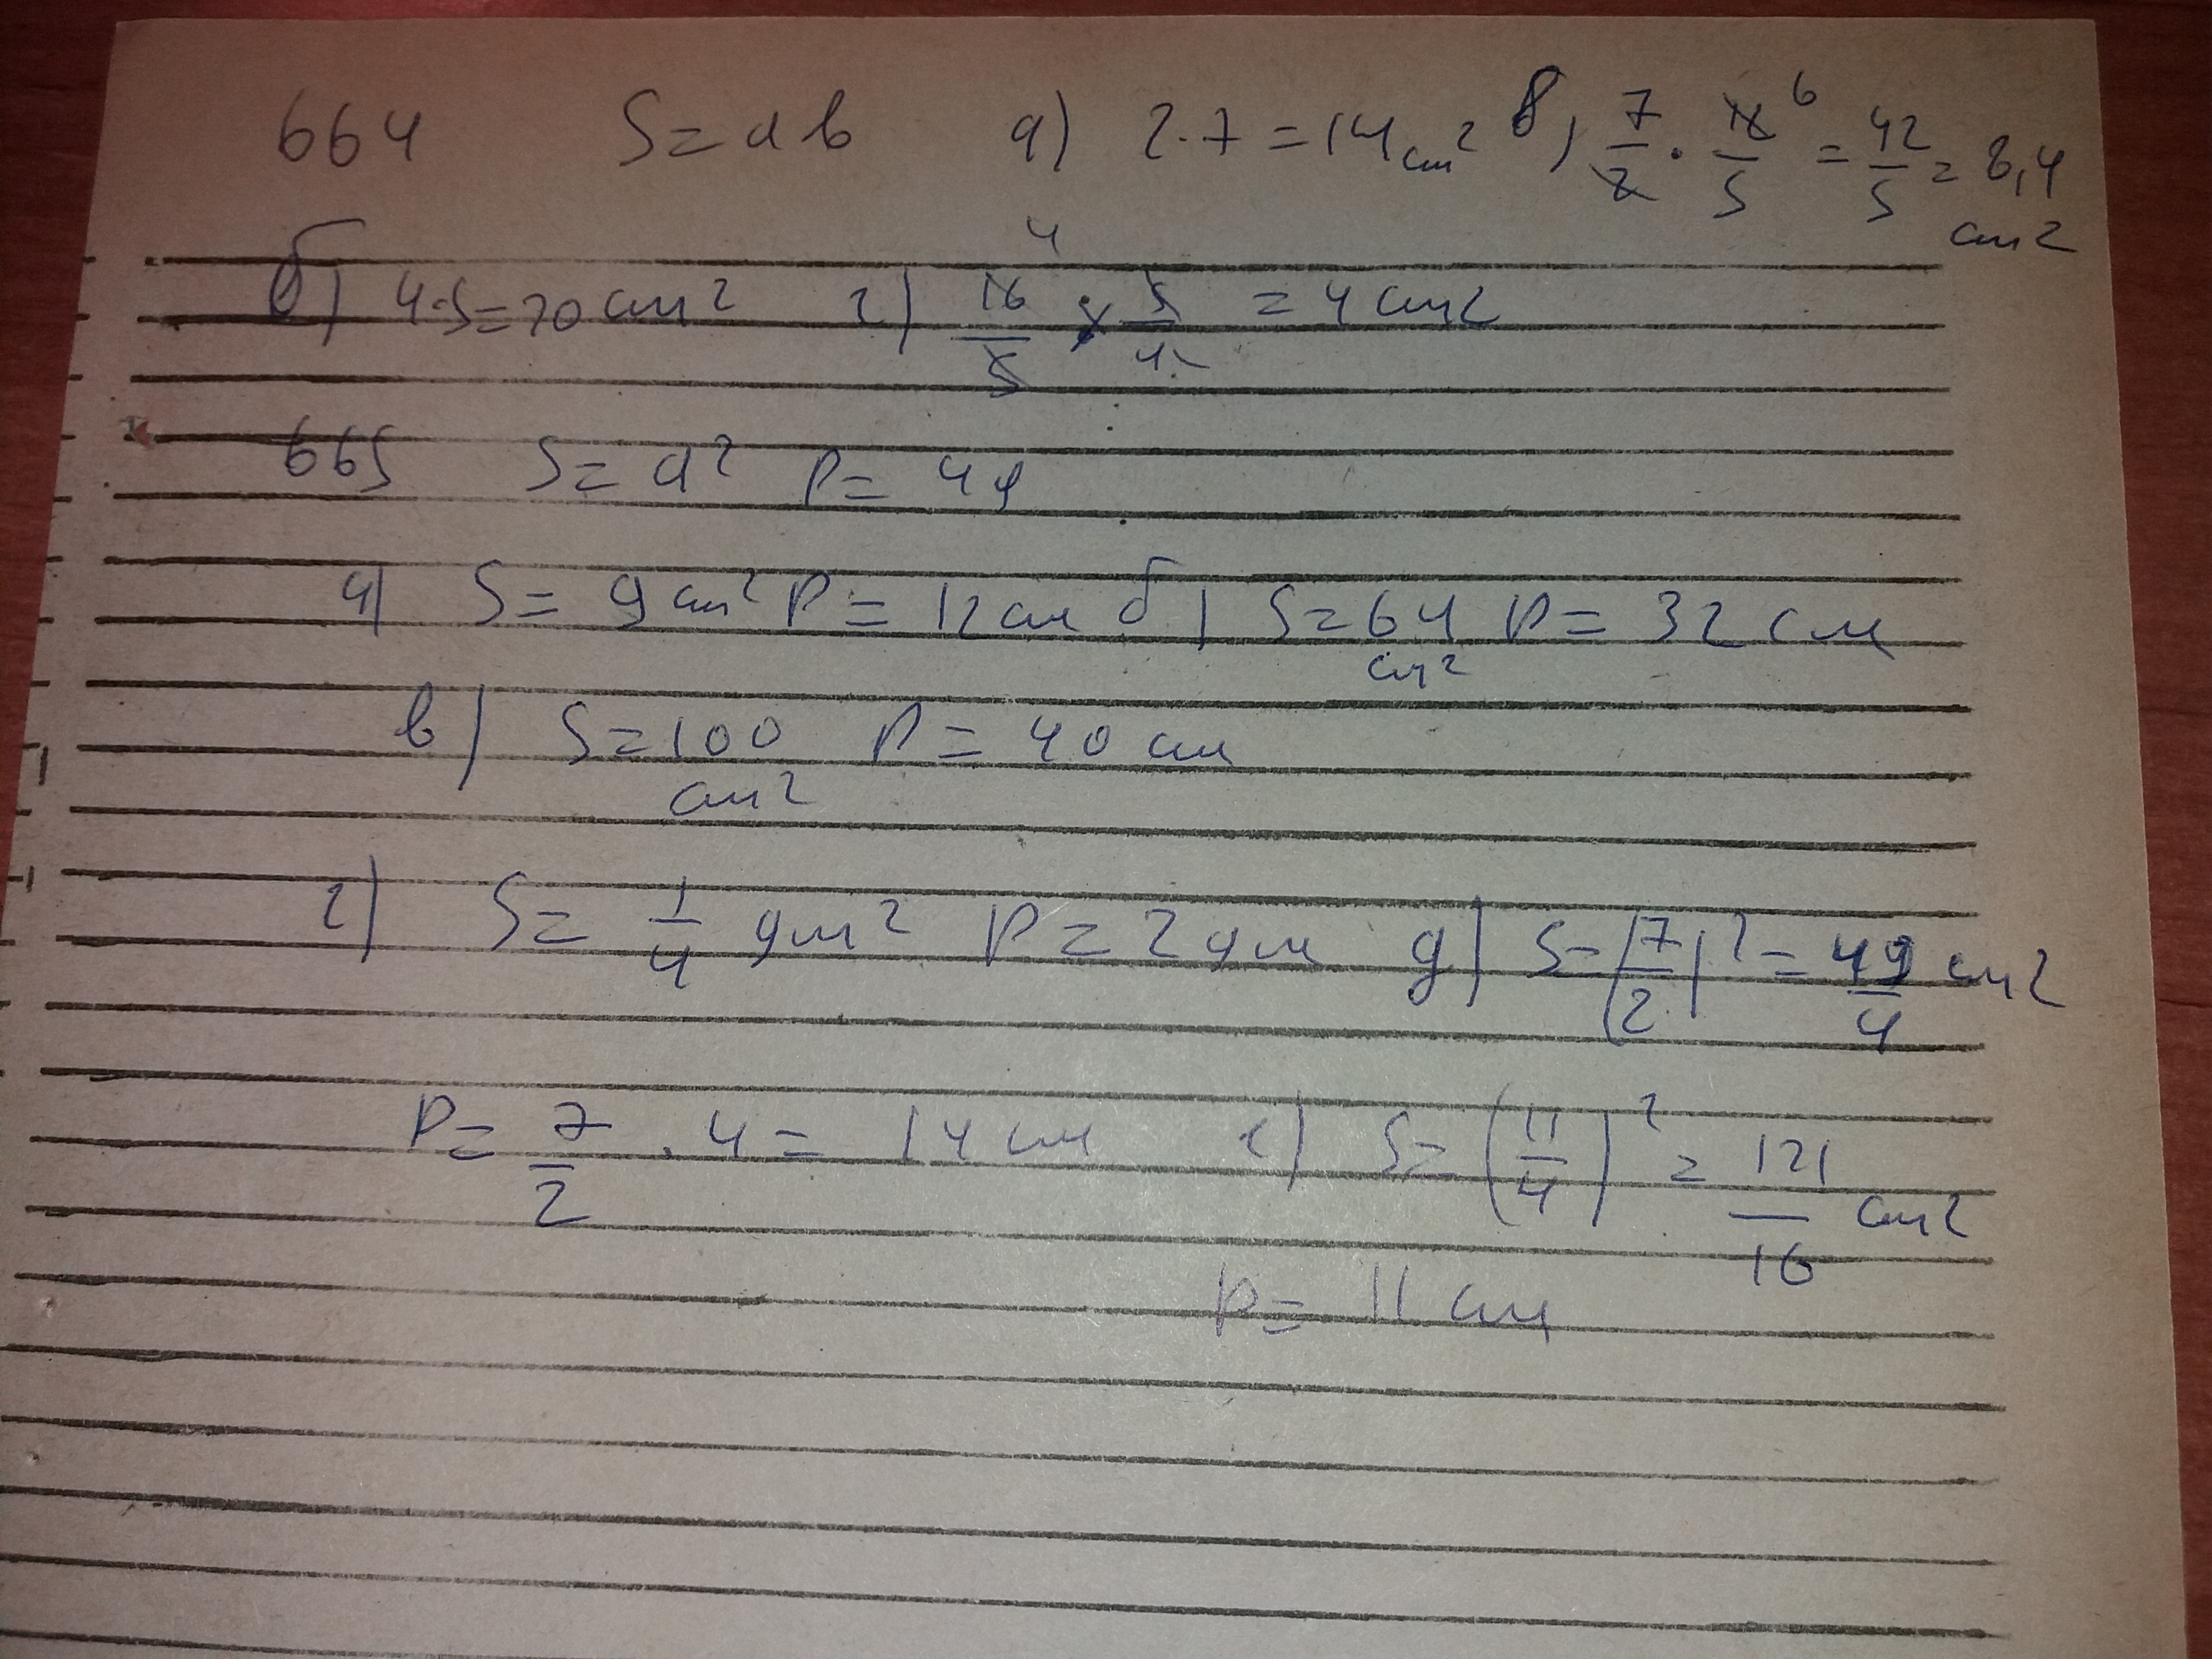 664 S=ab а) 2·7=14см² в) 7/2 · 12/5 ⁶ = 42/5 = 8,4 см²
б) 4·5=20см² г) 16/5 · 5/4 = 4см² 4
665 S=a² P=4a
а) S=9см² P=12см б) S=64 см² P=32см
в) S=100 см² P=40см
г) S=1/4 дм² P=2дм д) S=(7/2)²=49/4 см²
P=7/2 · 4=14см е) S=(11/4)²=121/16 см²
P=11см